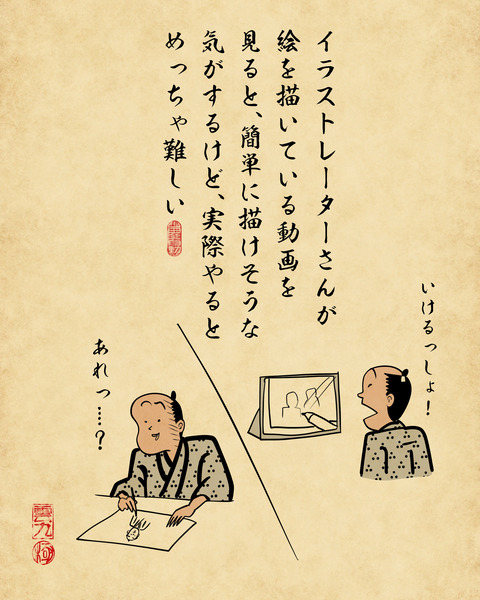 イラストレーターさんが
絵を描いている動画を
見ると、簡単に描けそうな
気がするけど、実際やると
めっちゃ難しい
いけるっしょ!
あれっ……?